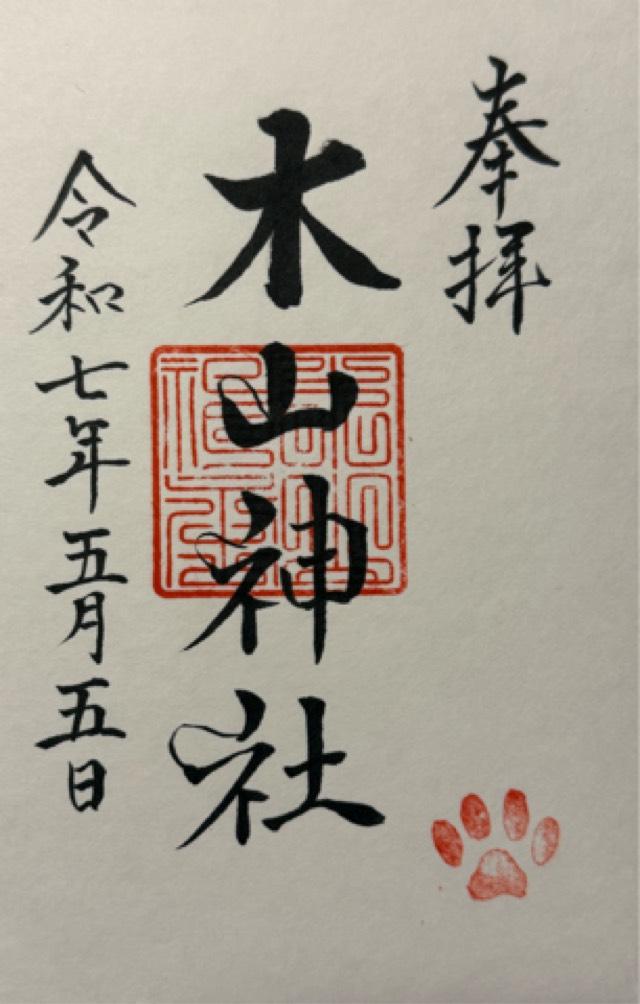 奉拝
木山神社
令和七年五月五日